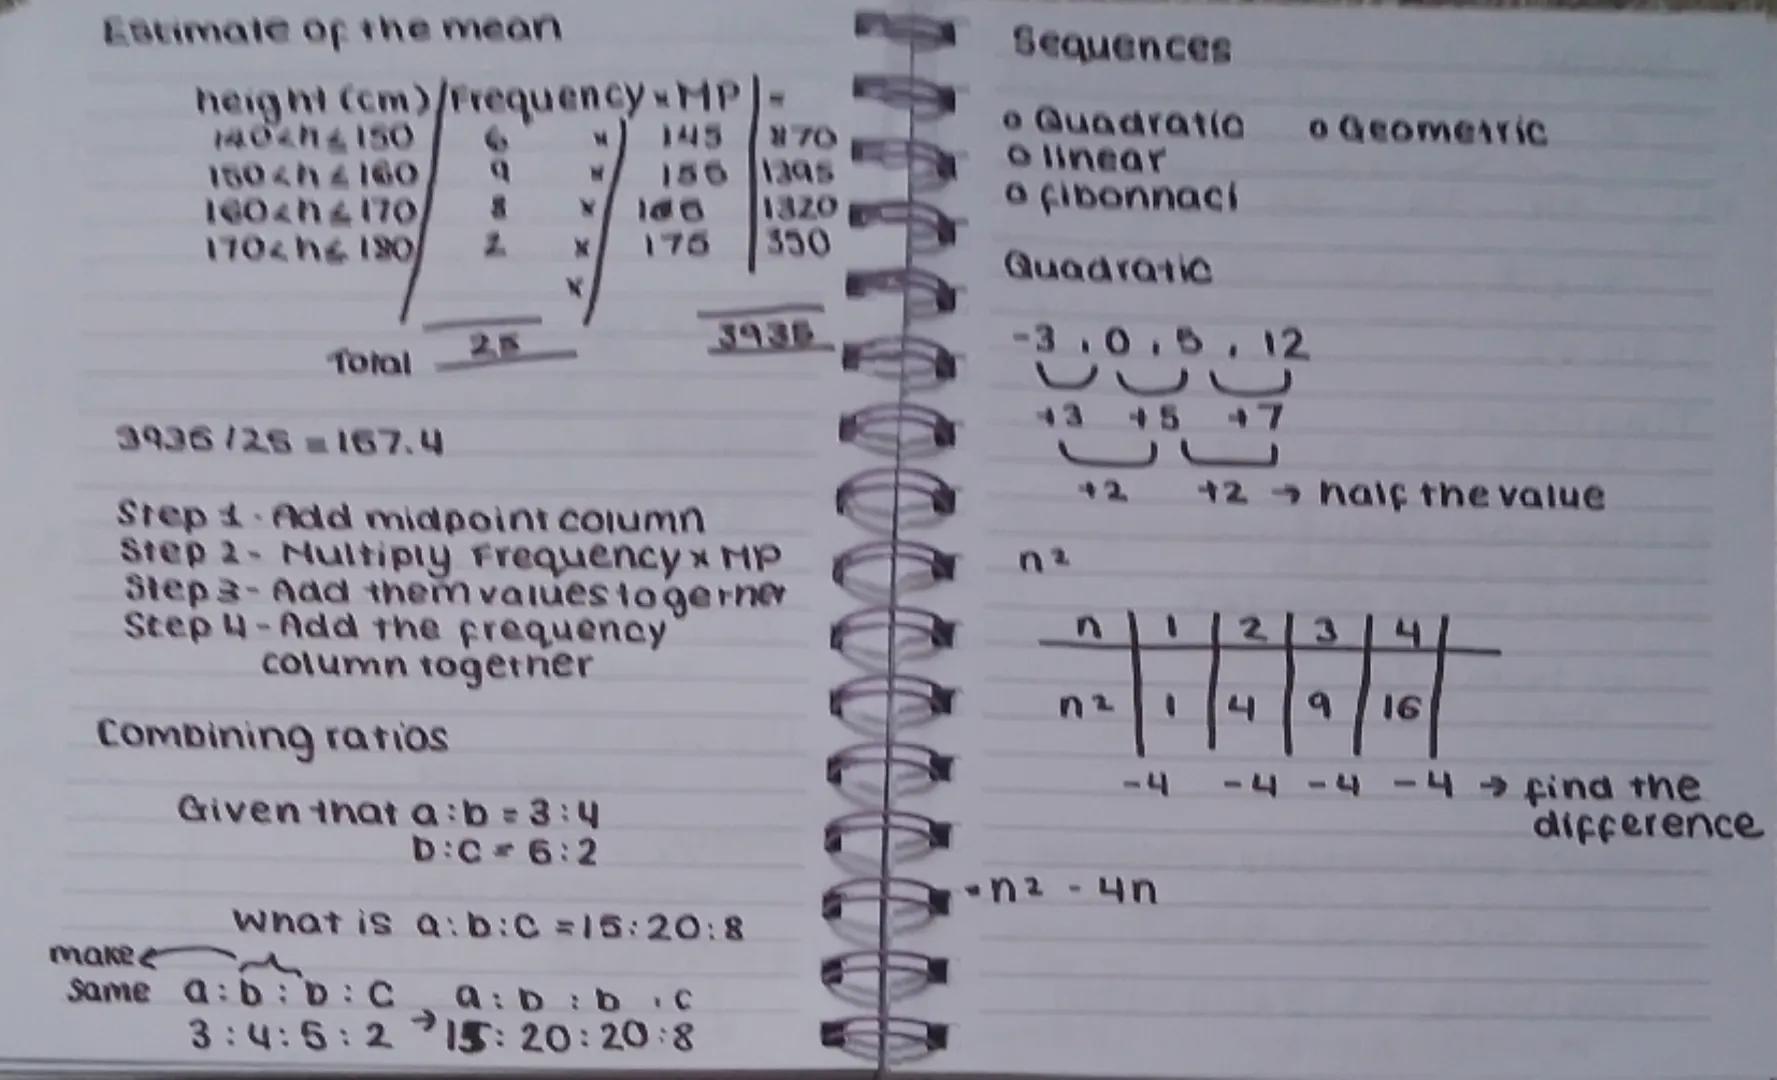 Estimate of the mean
height (cm) Frequency × MP =
140<h≤150 6 × 145 870
150<h≤160 9 × 155 1395
160<h≤170 8 × 165 1320
170<h≤180 2 × 175 350
×
Total 25 3935
3935/25 = 157.4
Step 1 - Add midpoint column
Step 2 - Multiply Frequency × MP
Step 3 - Add them values together
Step 4 - Add the frequency
column together
Combining ratios
Given that a:b = 3:4
b:c = 5:2
What is a:b:c = 15:20:8
make
same a:b:b:c a:b:b:c
3:4:5:2 → 15:20:20:8
Sequences
o Quadratic o Geometric
o linear
o fibonnaci
Quadratic
-3, 0, 5, 12
+3 +5 +7
+2 +2 → half the value
n²
n 1 2 3 4
n² 1 4 9 16
-4 -4 -4 -4 → find the
difference
= n² - 4n